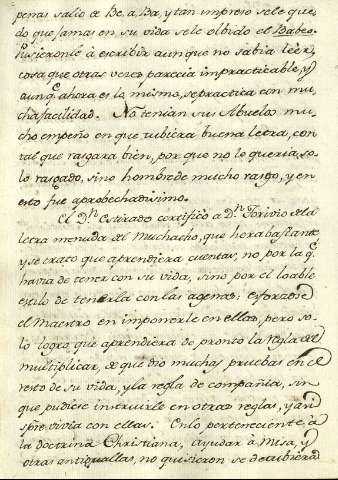 penas salio de Be, a Ba, y tan impreso se le que-
do que jamas en su vida se le olbido el Babeo.
Pusieronle à escribir aunque no sabia leer,
cosa que otras veces parecia impracticable, y
aunq.e ahora es lo mismo, se practica con mu-
cha facilidad. No tenian sus Abuelos mu-
cho empeño en que tubiera buena letra, con
tal que rasgara bien, por que no lo queria, so-
lo rasgado, sino hombre de mucho rasgo, y en
esto fue aprobechadisimo.
El D.n Estirado certificó a D.n Torivio de la
letra menuda del Muchacho, que hera bastante
y se trato que aprendiera cuentas, no por la q.e
havia de tener con su vida, sino por el loable
estilo de tenerla con las agenas: esforzose
el Maestro en imponerle en ellas, pero so-
lo logro que aprendiera de pronto la regla del
multiplicar, de que dio muchas pruebas en el
resto de su vida, y la regla de compañia, sin
que pudiese instruirle en otras reglas, y asi
sp̃re vivia con ellas. En lo perteneciente à
la doctrina Christiana, ayudar à Misa, y
otras antiguallas, no quisieron se detubiera